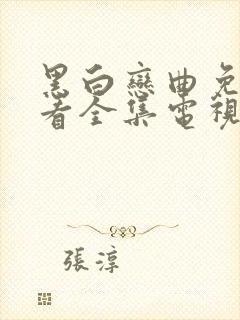 黑白戀曲免
看全集電視
張淳